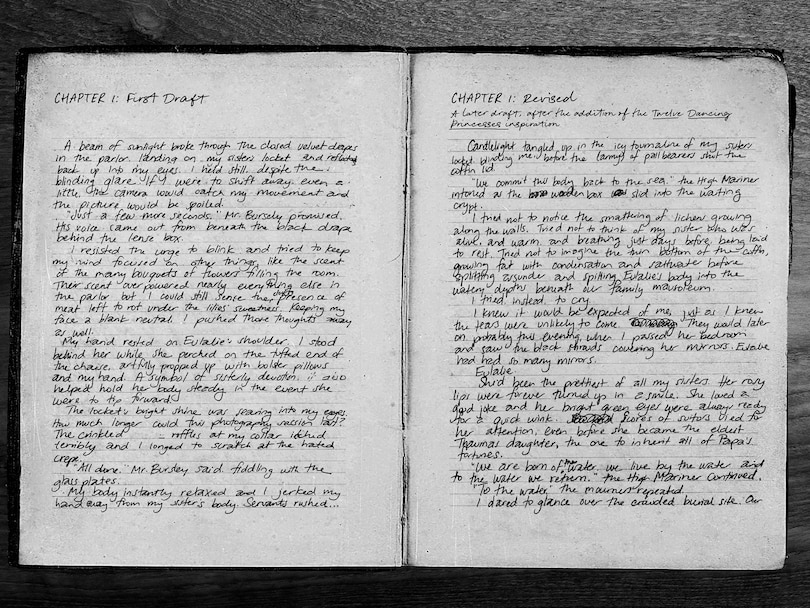 CHAPTER 1: First Draft
A beam of sunlight broke through the closed velvet drapes
in the parlor, landing on my sister's locket and reflecting
back up into my eyes. I held still, despite the
blinding glare. If I were to shift away even a
little, the camera would catch my movement and
the picture would be spoiled.
"Just a few more seconds," Mr. Bursley promised.
His voice came out from beneath the black drape
behind the lense box.
I resisted the urge to blink and tried to keep
my mind focused on other things, like the scent
of the many bouquets of flowers filling the room.
Their scent overpowered nearly everything else in
the parlor but I could still sense the presence of
meat left to rot under the lilies sweetness. Keeping my
face a blank neutral. I pushed those thoughts away
as well.
My hand rested on Eulalie's shoulder. I stood
behind her while she perched on the tufted end of
the chaise, artfully propped up with bolster pillows
and my hand. A symbol of sisterly devotion, it also
helped hold her body steady in the event she
were to tip forward.
The locket's bright shine was searing into my eyes.
How much longer could this photography session last?
The crinkled ruffles at my collar itched
terribly and I longed to scratch at the hated
crepe.
"All done," Mr. Bursley said, fiddling with the
glass plates.
My body instantly relaxed and I jerked my
hand away from my sister's body. Servants rushed...
CHAPTER 1: Revised
A later draft, after the addition of the Twelve Dancing
Princesses inspiration
Candlelight tangled up in the icy tourmaline of my sister's
locket, blinding me before the (army) of pall bearers shut the
coffin lid.
"We commit this body back to the sea," the High Mariner
intoned as the wooden box slid into the waiting
crypt.
I tried not to notice the smattering of lichen growing
along the walls. Tried not to think of my sister who was
alive, and warm, and breathing just days before, being laid
to rest. Tried not to imagine the thin bottom of the coffin,
growing fat with condensation and saltwater before
splitting asunder and spilling Eulalie's body into the
watery depths beneath our family mausoleum.
I tried, instead, to cry.
I knew it would be expected of me, just as I knew
the tears were unlikely to come. They would later
on probably this evening, when I passed her bedroom
and saw the black shrouds covering her mirrors. Eulalie
had had so many mirrors.
Eulalie.
She'd been the prettiest of all my sisters. Her rosy
lips were forever turned up in a smile. She loved a
good joke and her bright green eyes were always ready
for a quick wink. Scores of suitors vied for
her attention, even before she became the eldest
Thaumas daughter, the one to inherit all of Papa's
fortunes.
"We are born of the water, we live by the water and
to the water we return," the High Mariner continued.
"To the water" the mourners repeated.
I dared to glance over the crowded burial site. Our